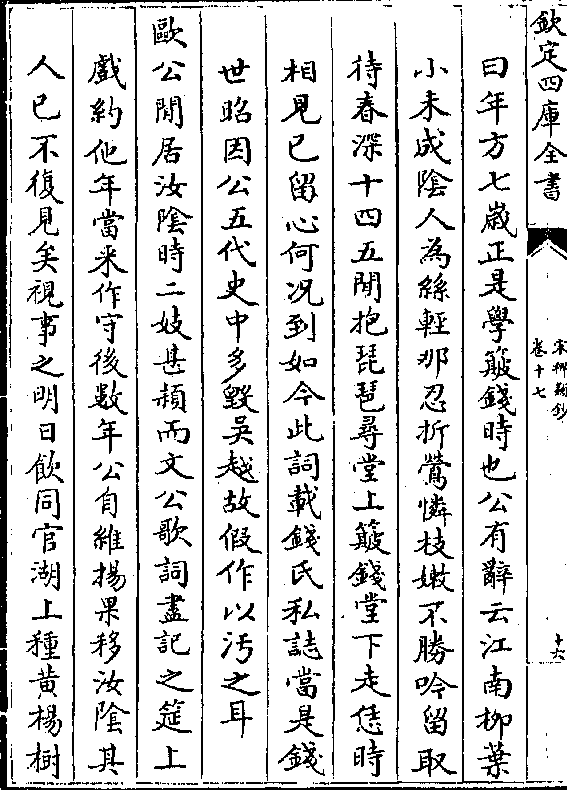 欽定四庫全書
宋稗類鈔
卷十七
十六
曰年方七歲正是學簸錢時也公有辭云江南柳葉
小未成陰人為絲輕那忍折鶯憐枝嫩不勝吟留取
待春深十四五閒抱琵琶尋堂上簸錢堂下走恁時
相見已留心何况到如今此詞載錢氏私誌當是錢
世昭因公五代史中多毀吳越故假作以汚之耳
歐公閒居汝陰時二妓甚頴而文公歌詞盡記之筵上
戲約他年當來作守後數年公自維揚果移汝陰其
人已不復見矣視事之明日飲同官湖上種黄楊樹